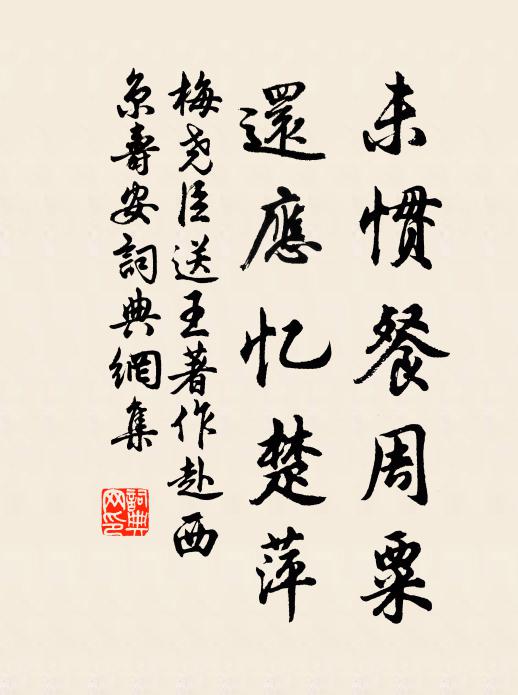 未惯餐周粟
還應忆楚萍
梅尧臣送王著作赴西
京壽安詞典網集
詞典网印